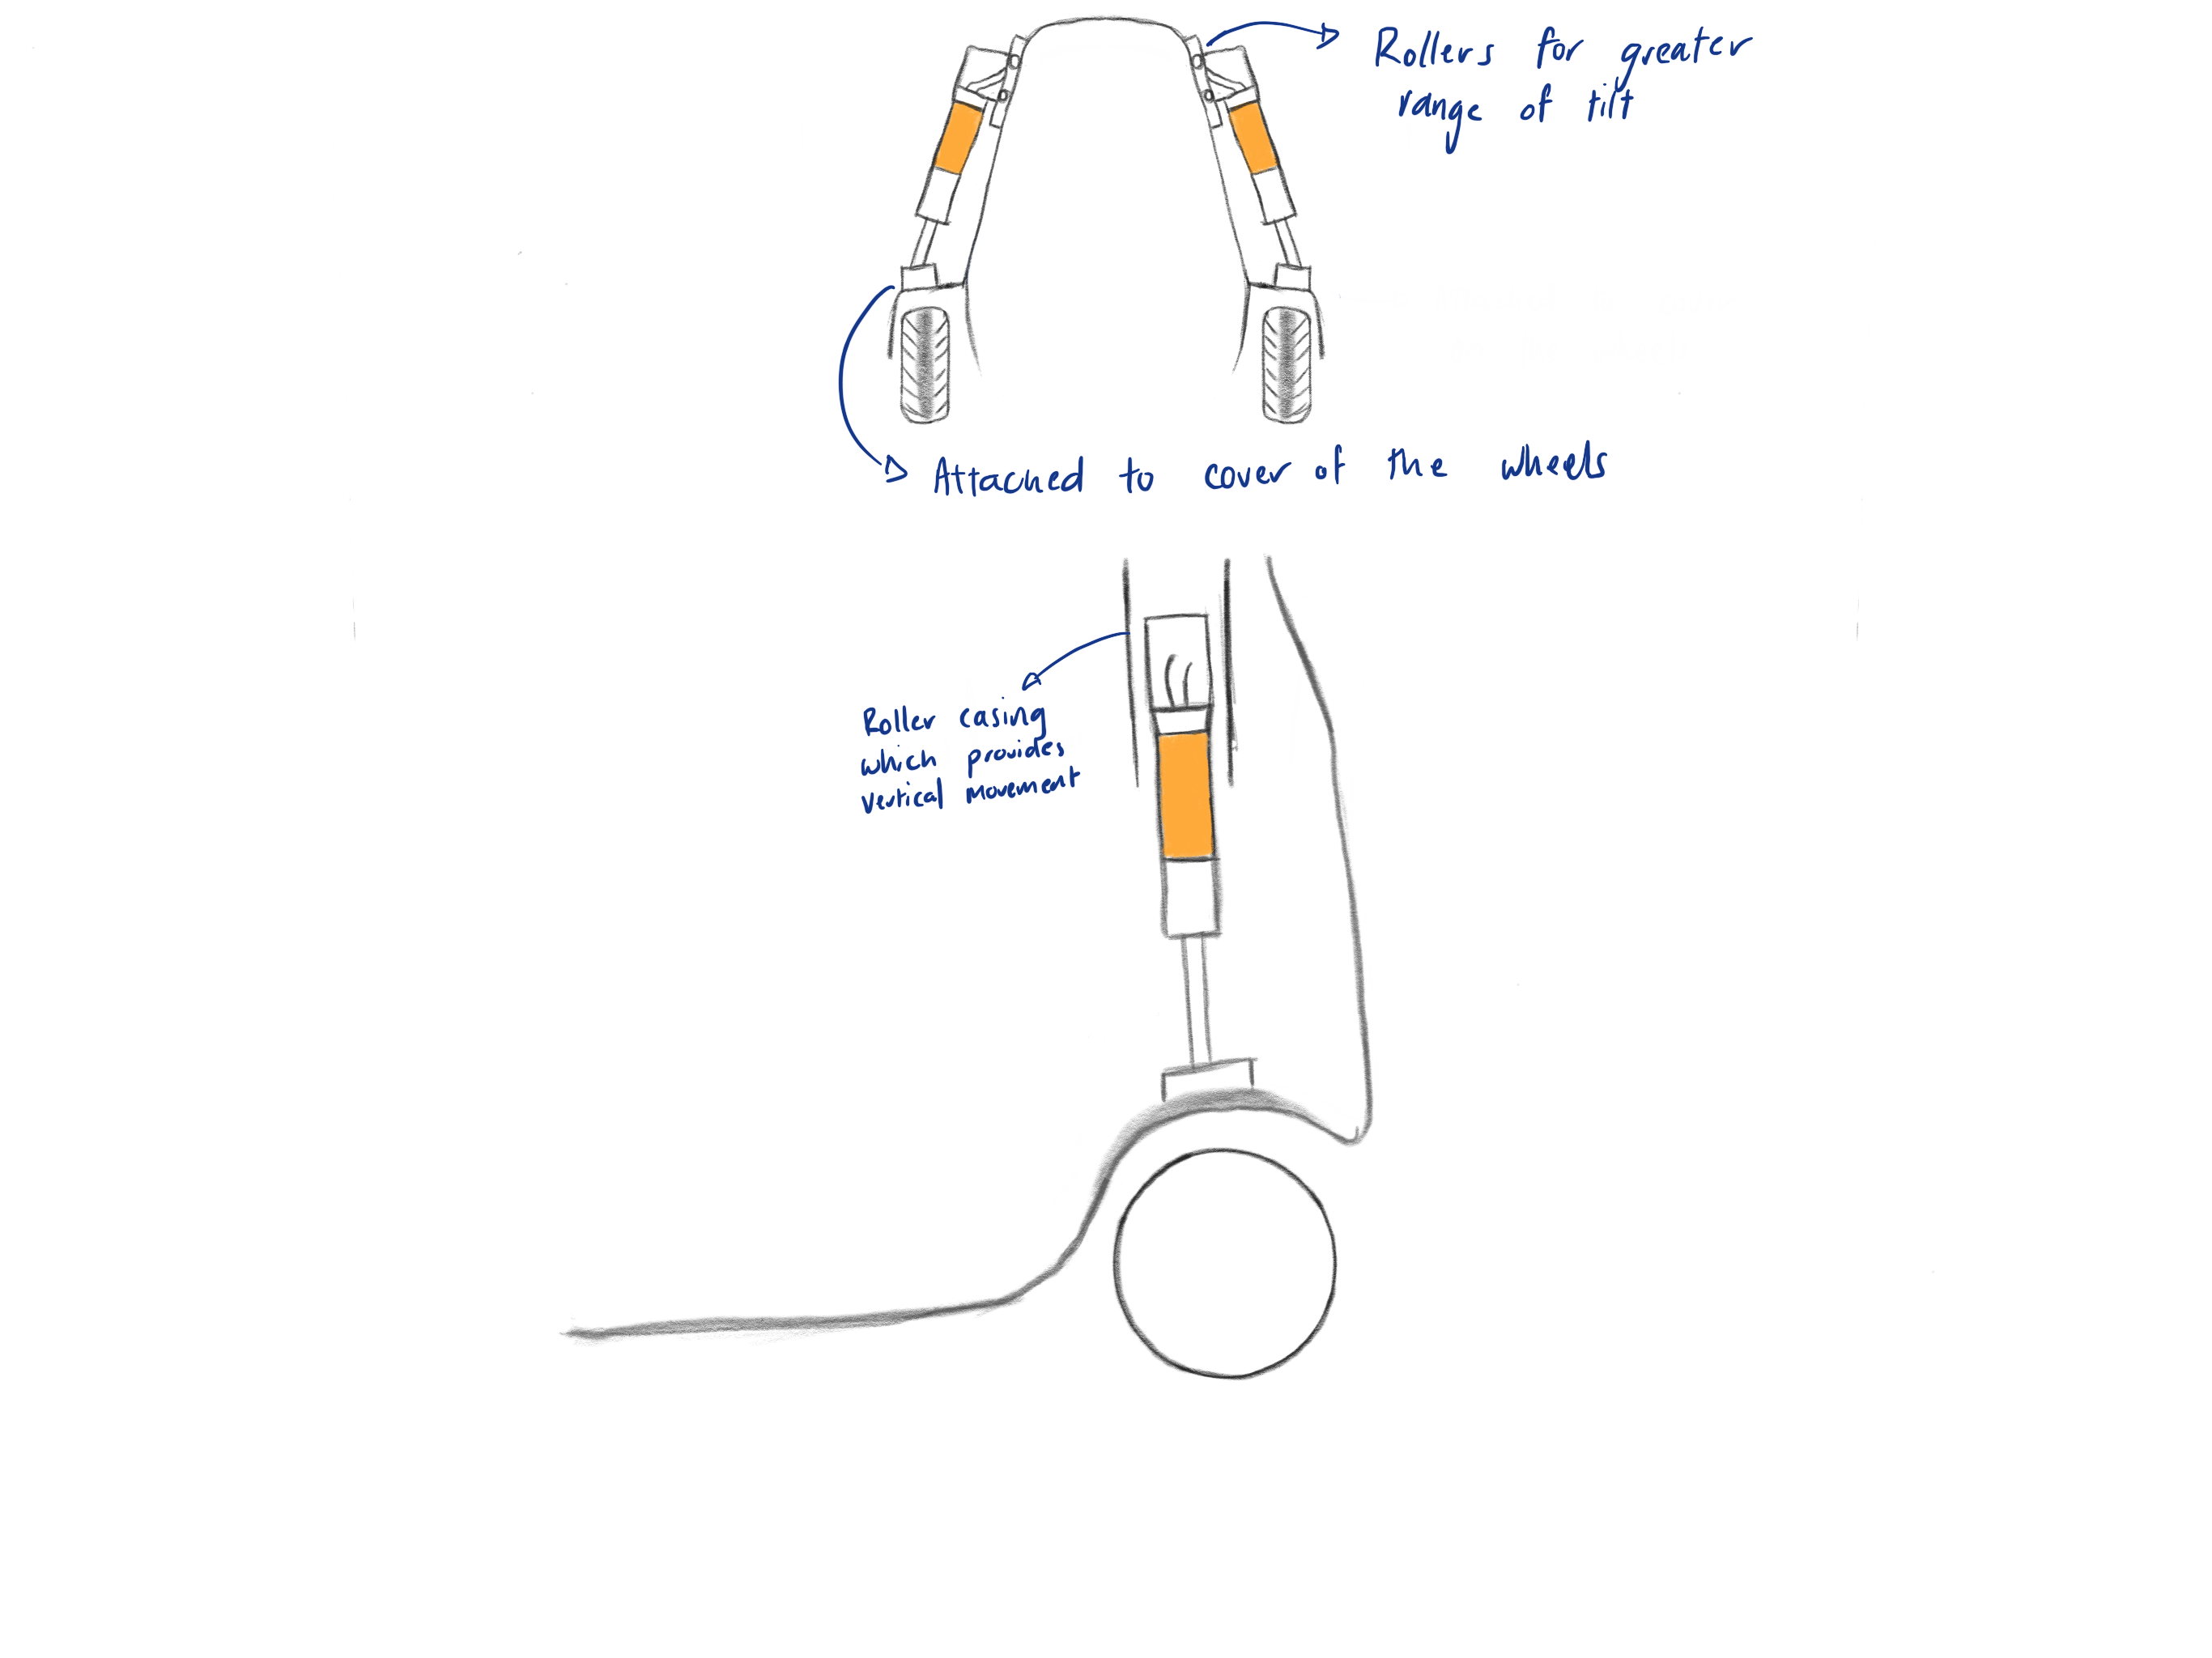 Rollers for greater
range of tilt
Attached to cover of the wheels
Roller casing
which provides
vertical movement